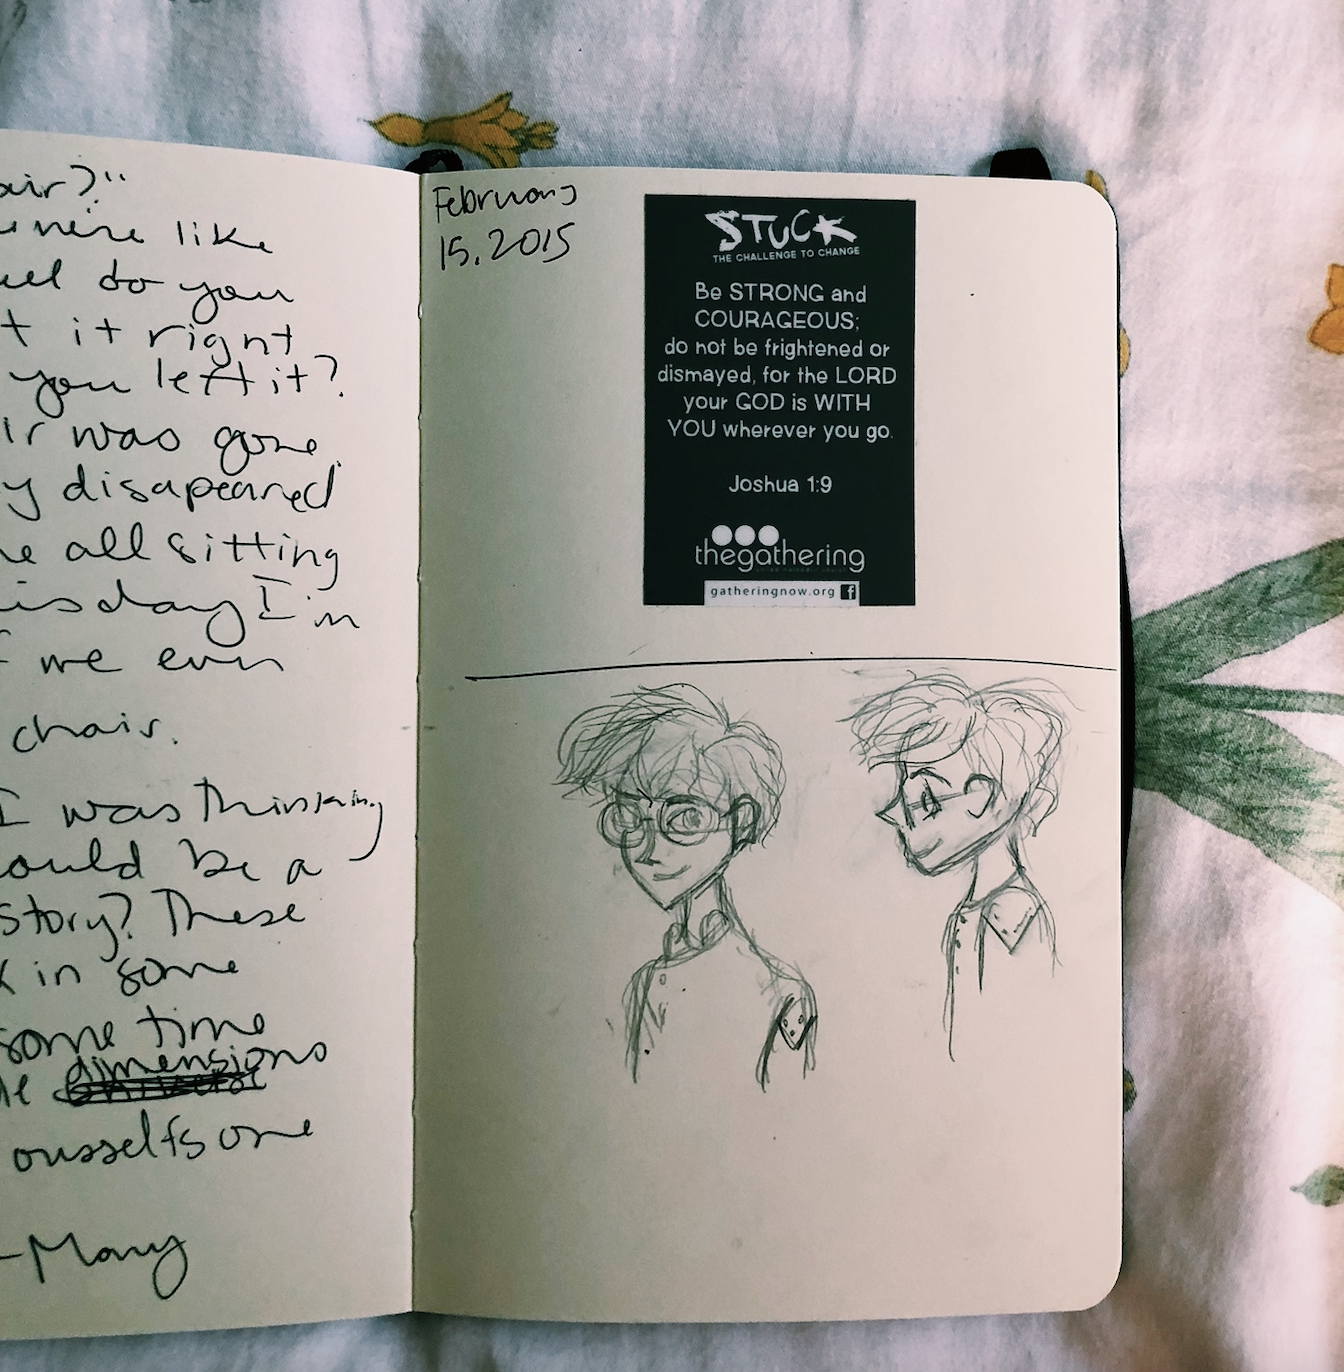 air?"
like
do you
t it right
you left it?
ir was gone.
y disapeared
e all sitting
is day I'm
f we even
chair.
I was thinking
ould be a
story? These
k in some
some time
dimensions
ousselfs one
-Mary
February
15, 2015
STUCK
THE CHALLENGE TO CHANGE
Be STRONG and
COURAGEOUS;
do not be frightened or
dismayed, for the LORD
your GOD is WITH
YOU wherever you go.
Joshua 1:9
thegathering
gatheringnow.org f